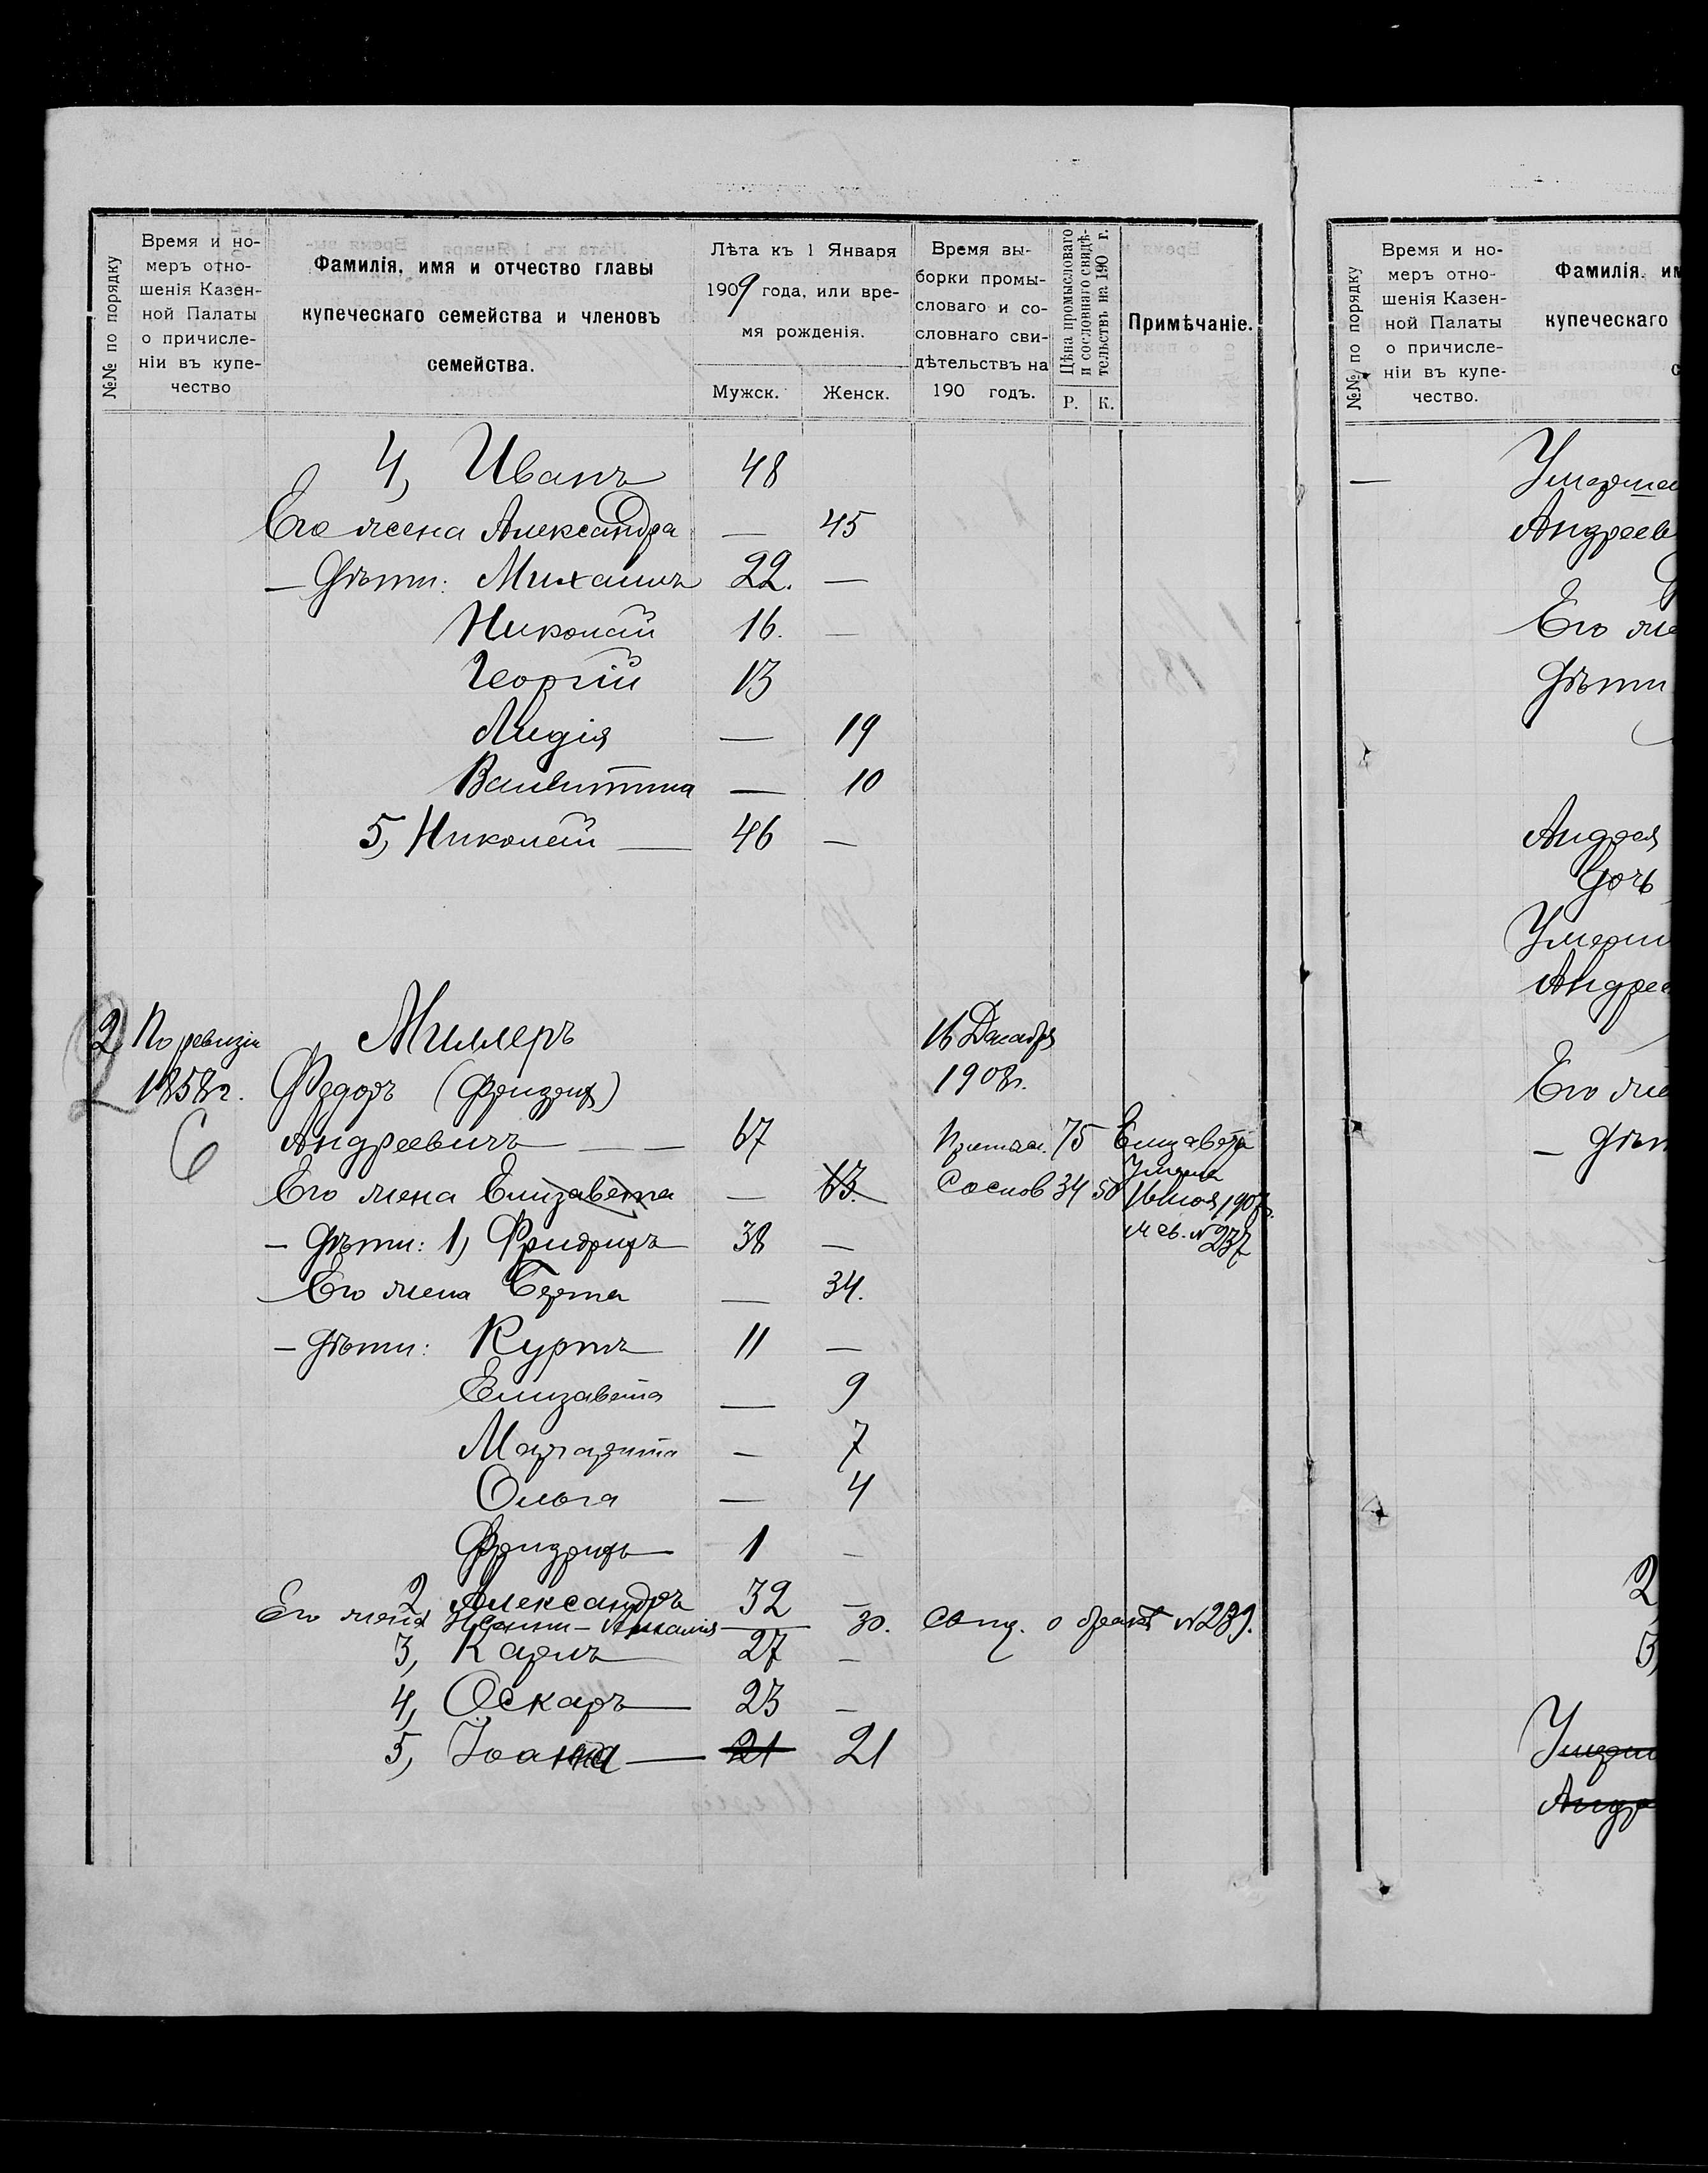 №№ по порядку
Время и но-
меръ отно-
шенія Казен-
ной Палаты
о причисле-
ніи въ купе-
чество
Фамилія, имя и отчество главы
купеческаго семейства и членовъ
семейства.
Лѣта къ 1 Января
1909 года, или вре-
мя рожденія.
Мужск. Женск.
Время вы-
борки промы-
словаго и со-
словнаго сви-
дѣтельствъ на
190 годъ.
Цѣна промысловаго
и сословнаго свидѣ-
тельствъ на 190 г.
Р. К.
Примѣчаніе.
4, Иванъ 48
Его жена Александра — 45
— Дѣти: Михаилъ 22. —
Николай 16. —
Георгій 13
Лидія — 19
Валентина — 10
5, Николай — 46 —
2 По ревизіи Миллеръ 16 Декабря
1858 г. Федоръ (Фридрихъ) 1908 г.
6 Андреевичъ — — 67 75 Елизавета
Его жена Елизавета — 63. Сослов 34 50 1907 г.
— Дѣти: 1, Фридрихъ 38 — № 237
Его жена Берта — 34.
— Дѣти: Куртъ 11 —
Елизавета — 9
Маргарита — 7
Ольга — 4
Фридрихъ 1 —
2 Александръ 32 —
Его жена — 30. о бракѣ № 239.
3, Карлъ 27 —
4, Оскаръ 23 —
5, Іоанна — 21 21
№№ по порядку
Время и но-
меръ отно-
шенія Казен-
ной Палаты
о причисле-
ніи въ купе-
чество.
Фамилія. им
купеческаго
с
— Умерша
Андреев
Его же
Дѣти
Андрея
Дочь
Умерш
Андрее
Его же
— Дѣт
2,
3,
Умерш
Андр